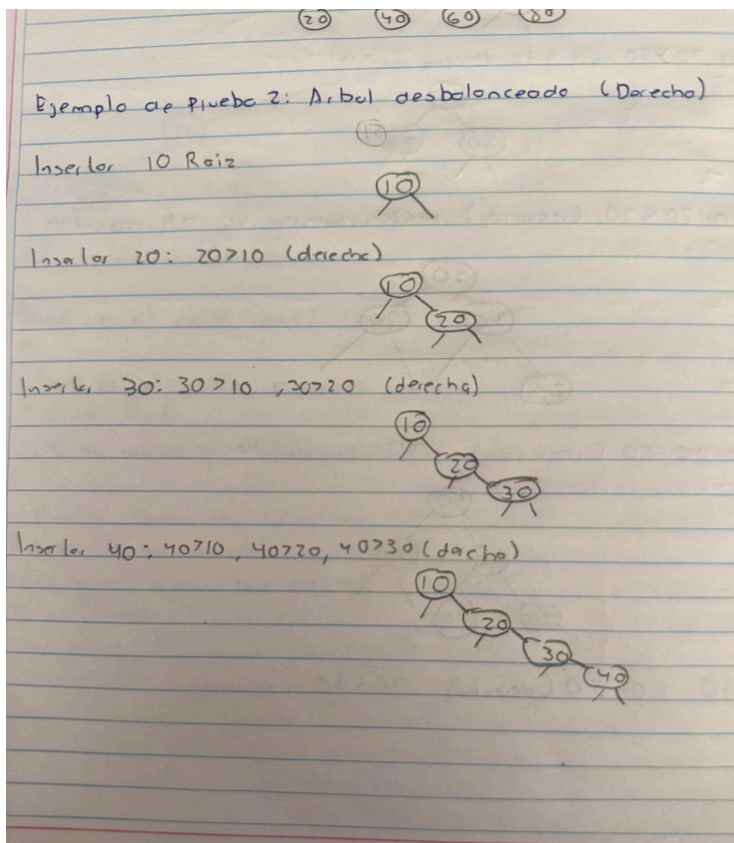 20 40 60 80
Ejemplo de Prueba 2: Arbol desbalanceado (Derecha)
Insertar 10 Raiz
10
Insertar 20: 20>10 (derecha)
10
20
Insertar 30: 30>10, 30>20 (derecha)
10
20
30
Insertar 40: 40>10, 40>20, 40>30 (derecha)
10
20
30
40